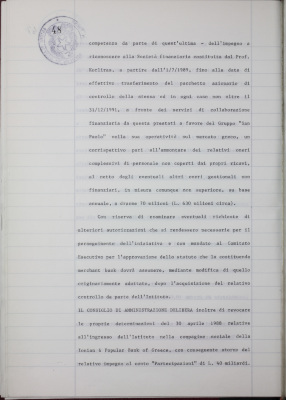 48
competenza da parte di quest'ultima - dell'impegno a
riconoscere alla Società Finanziaria costituita dal Prof.
a partire dall'1/7/1989, fino alla data di
effettivo trasferimento del pacchetto azionario di
controllo della stessa ed in ogni caso non oltre il
31/12/1991, a fronte dei servizi di collaborazione
finanziaria da questa prestati a favore del Gruppo "San
Paolo" nella sua operatività sul mercato greco, un
corrispettivo pari all'ammontare dei relativi oneri
complessivi di personale non coperti dai propri ricavi,
al netto degli eventuali altri costi gestionali non
finanziari, in misura comunque non superiore, su base
annuale, a dracme 70 milioni (L. 630 milioni circa).
Con riserva di esaminare eventuali richieste di
ulteriori autorizzazioni che si rendessero necessarie per il
perseguimento dell'iniziativa e con mandato al Comitato
Esecutivo per l'approvazione dello statuto che la costituenda
merchant bank dovrà assumere, mediante modifica di quello
originariamente adottato, dopo l'acquisizione del relativo
controllo da parte dell'Istituto.
IL CONSIGLIO DI AMMINISTRAZIONE DELIBERA inoltre di revocare
la propria determinazione del 30 aprile 1988 relativa
all'ingresso dell'Istituto nella compagine sociale della
Ionian & Popular Bank of Greece, con conseguente storno del
relativo impegno al conto "Partecipazioni" di L. 40 miliardi.